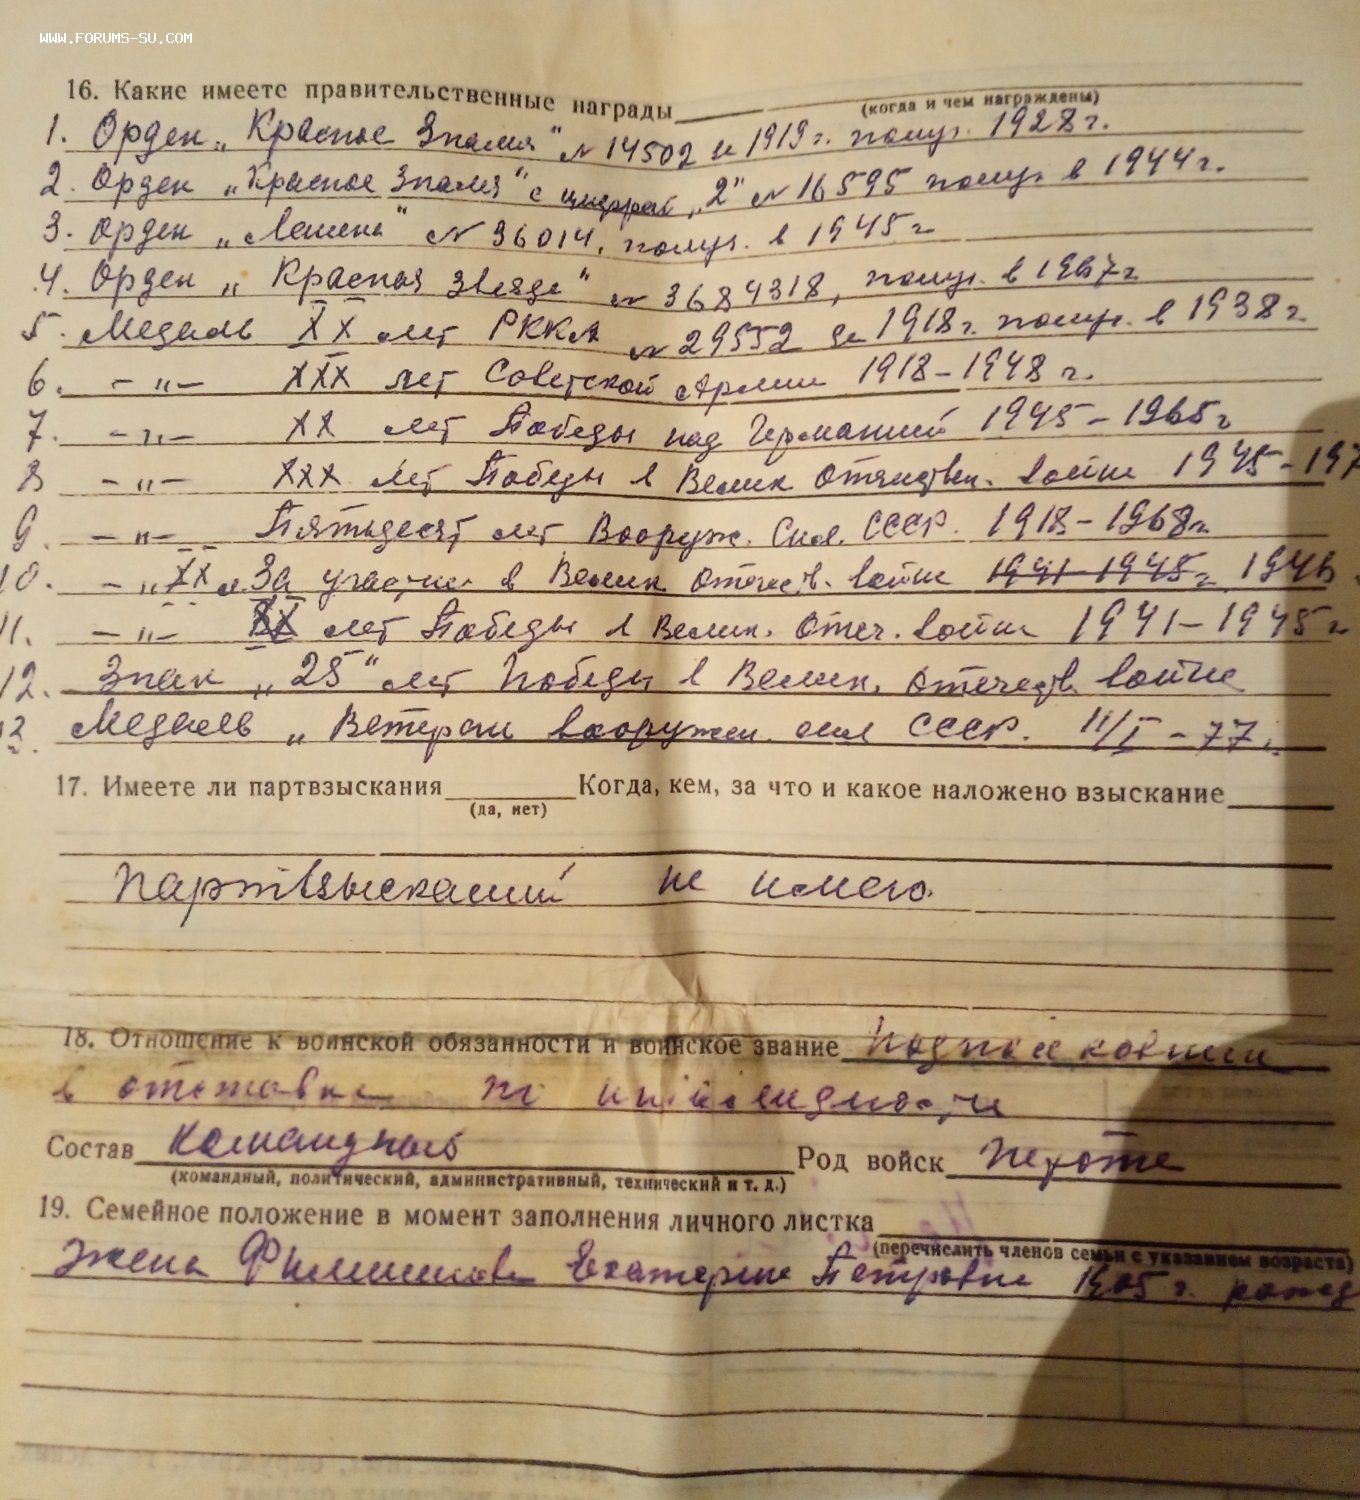 WWW.FORUMS-SU.COM
16. Какие имеете правительственные награды
(когда и чем награждены)
1. Орден „Красное Знамя" № 14502 и 1919 г. получ. 1928 г.
2. Орден „Красное Знамя" с цифрой „2" № 16595 получ. в 1944 г.
3. Орден „Ленина" № 36014, получ. в 1945 г
4. Орден „Красная Звезда" № 3684318, получ. в 1967 г
5. Медаль XX лет РККА № 29552 за 1918 г. получ. в 1938 г.
6. -"- XXX лет Советской Армии 1918-1948 г.
7. -"- XX лет Победы над Германией 1945-1965 г
8 -"- XXX лет Победы в Велик. Отечествен. войне 1945-197
9. -"- Пятьдесят лет Вооруж. Сил. СССР. 1918-1968 г.
10. -"- XX л. За участие в Велик. отечеств. войне 1941-1945 г. 1946
11. -"- XX лет Победы в Велик. Отеч. войне 1941-1945 г
12. Знак „25" лет Победы в Велик. отечеств. войне
13. Медаль „Ветеран вооружен. сил СССР. 11/I-77 г.
17. Имеете ли партвзыскания Когда, кем, за что и какое наложено взыскание
(да, нет)
Партвзысканий не имею.
18. Отношение к воинской обязанности и воинское звание Подполковник
в отставке по инвалидности
Состав командный Род войск пехота
(командный, политический, административный, технический и т. д.)
19. Семейное положение в момент заполнения личного листка
(перечислить членов семьи с указанием возраста)
Жена Екатерина Петровна 1905 г. рожд